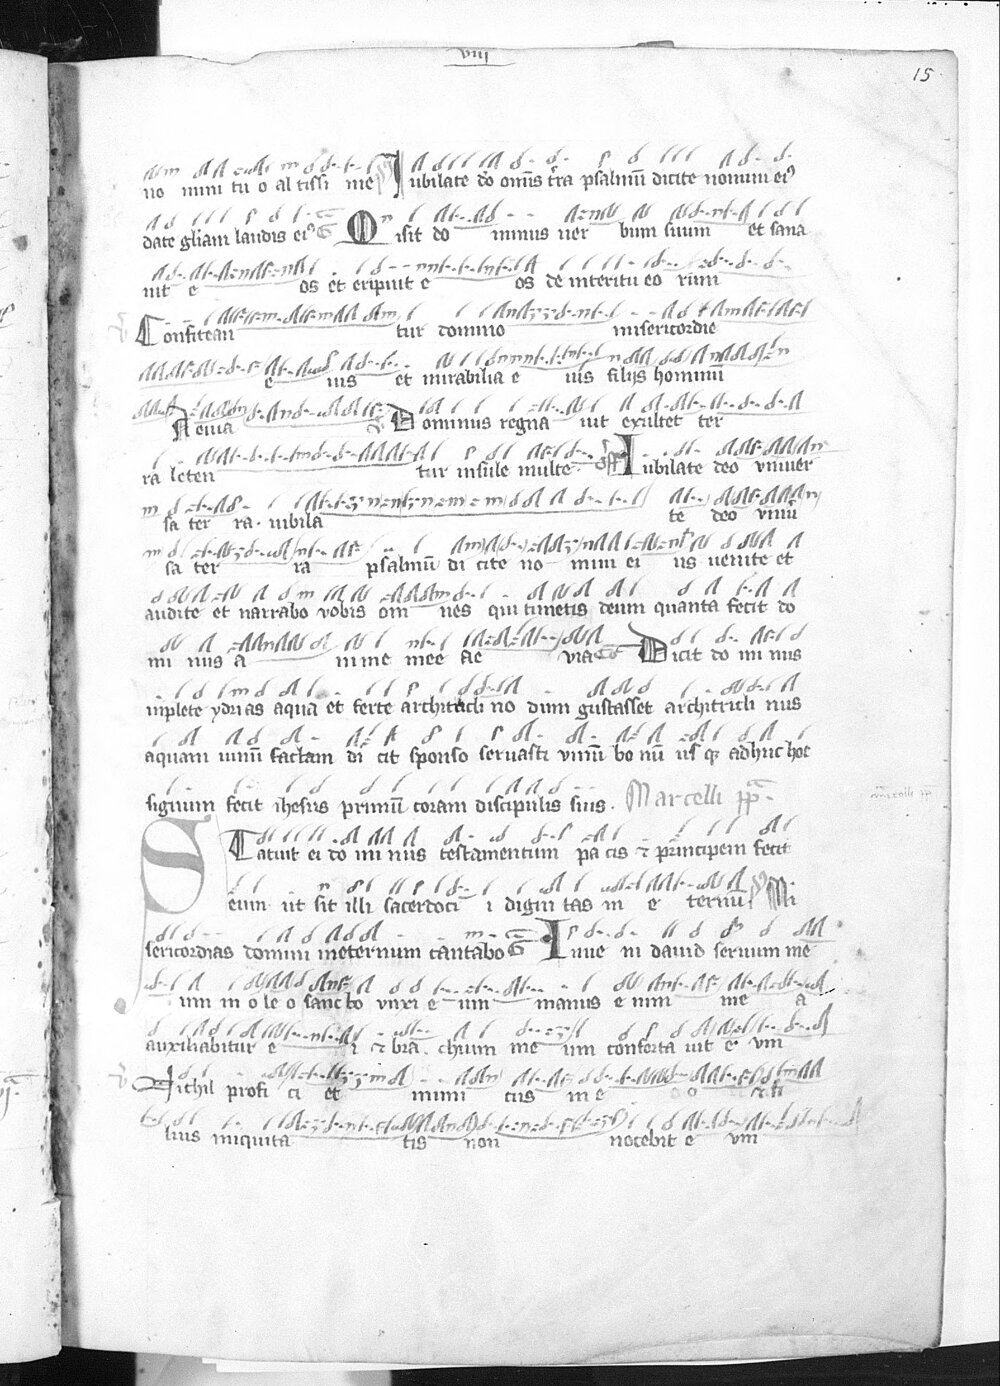 viii
15
no mini tu o al tissi me Iubilate do omīs t̄ra psalmū dicite nomini ei⁹
date gliam laudis ei⁹ G̅ Misit do minus uer bum suum et sana
uit e os et eripuit e os de interitu eo rum
Confitean tur domino misericordie
e ius et mirabilia e ius filijs hominū
Aeuia Dominus regna uit exultet ter
ra leten tur insule multe. Iubilate deo vniuer
sa ter ra. iubila te deo vniū
sa ter ra psalmū di cite no mini ei us uenite et
audite et narrabo vobis om nes qui timetis deum quanta fecit do
mi nus a nime mee ae via Dicit do mi nus
implete ydrias aqua et ferte architricli no dum gustasset architricli nus
aquam uinū factam di cit sponso seruasti vinū bo nū us qʒ adhuc hoc
signum fecit ihesus primū coram discipulis suis. Marcelli pp̄.
Statuit ei do mi nus testamentum pa cis ⁊ principem fecit
eum ut sit illi sacerdoci i digni tas in e ternū Mi
sericordias domini ineternum cantabo G̅ Inue ni dauid seruum me
um in o le o sancto vnxi e um manus e nim me a
auxiliabitur e i ⁊ bra. chium me um conforta uit e um
Nichil profi ci et inimi cus in e o
lius iniquita tis non nocebit e um